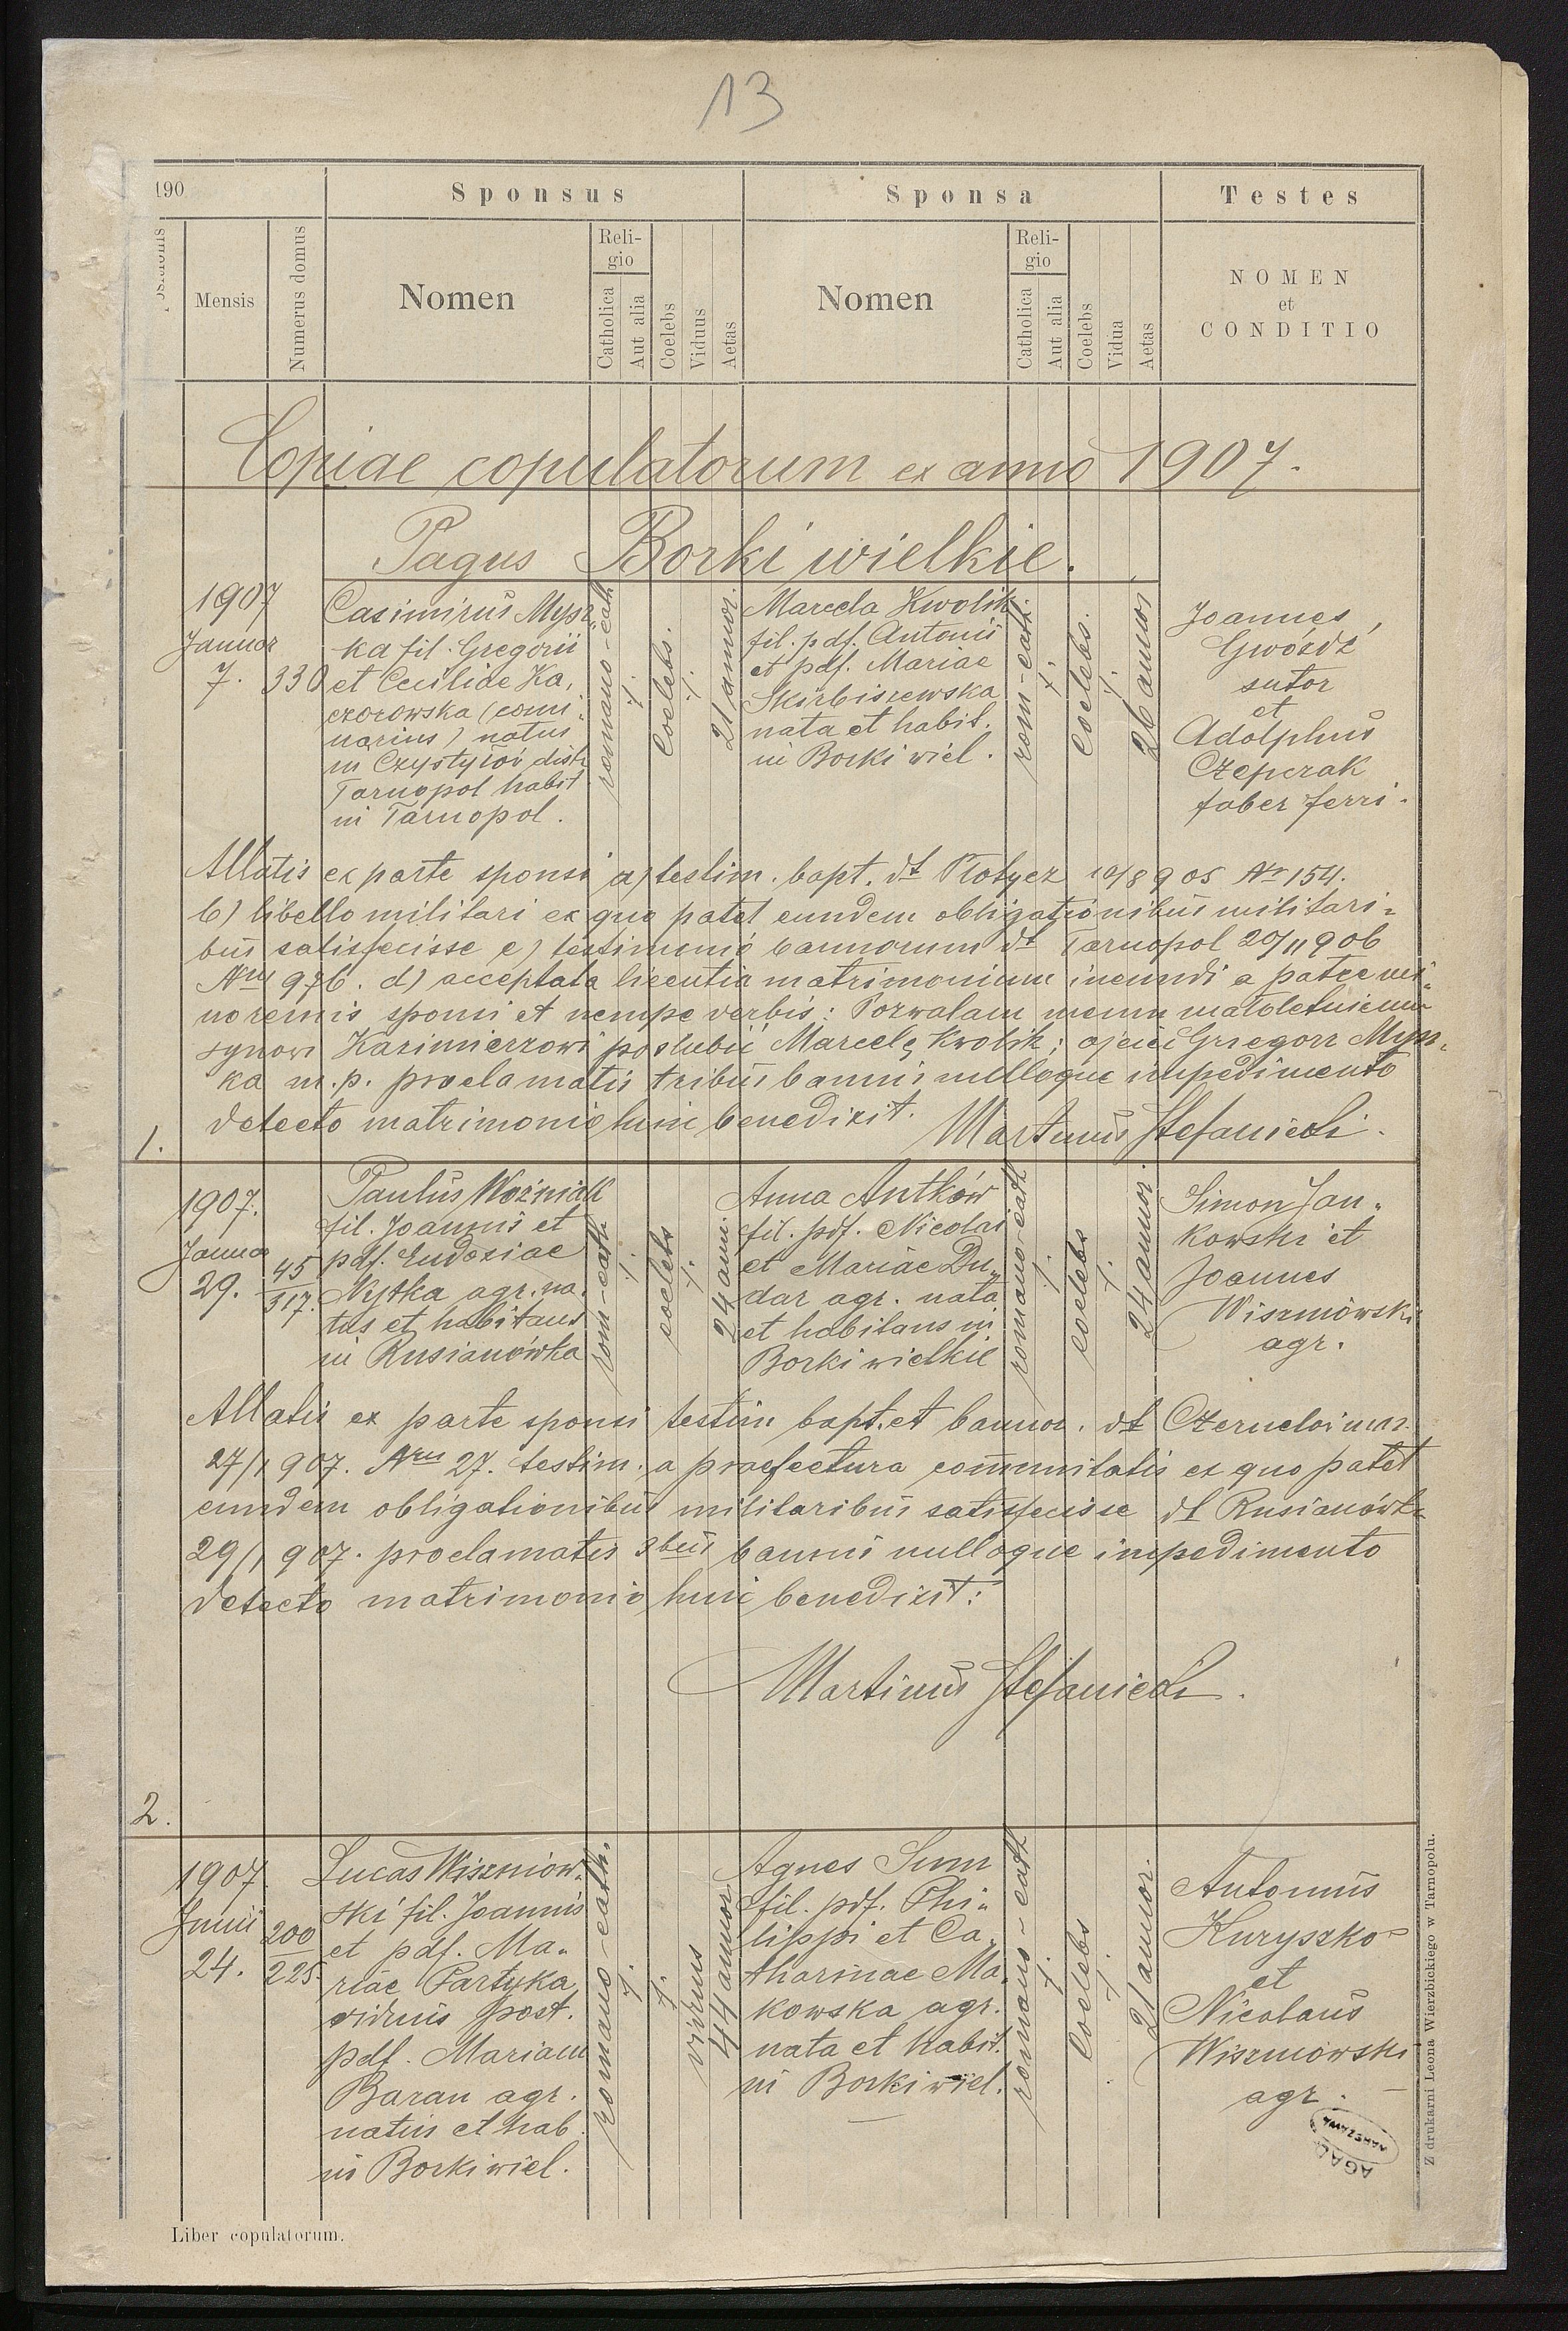 13
190
Sponsus
Sponsa
Testes
Mensis
Numerus domus
Nomen
Reli-
gio
Catholica
Aut alia
Coelebs
Viduus
Aetas
Nomen
Reli-
gio
Catholica
Aut alia
Coelebs
Vidua
Aetas
NOMEN
et
CONDITIO
Copiae copulatorum ex anno 1907.
Pagus Borki wielkie.
1907
Januar
7.
330
Casimirus Mysz-
ka fil. Gregorii
et Ceciliae Ka,
czorowska (comi-
narius) natus
in Czystyłów distr
Tarnopol habit
in Tarnopol.
romano-cath
/.
Coelebs.
/.
21 annor.
Marcela Kwolik
fil. pdf. Antonii
et pdf. Mariae
Skirbiszewska
nata et habit.
in Borki wiel.
rom-cath.
/.
Coelebs.
/.
26 annor
Joannes
Gwóźdź
sutor
et
Adolphus
Czepczak
faber ferri.
Allatis ex parte sponsi a) testim. bapt. dt Płotycz 10/8 905 Nr 154.
b) libello militari ex quo patet eundem obligationibus militari-
bus satisfecisse c) testimonio bannorum dt Tarnopol 20/11 906
Nru 976. d) acceptata licentia matrimonium ineundi a patre mi-
norennis sponsi et nempe verbis: Pozwalam memu małoletniemu
synowi Kazimierzowi poślubić Marcelę Kwolik; ojciec Grzegorz Mysz-
ka m.p. proclamatis tribus bannis nulloque impedimento
detecto matrimonio huic benedixit. Martinus Stefanicki.
1.
1907.
Januar
29.
45
317.
Paulus Woźniak
fil. Joannis et
pdf. Eudoxiae
Nytka agr. na-
tus et habitans
in Rusianówka
rom-cath
/.
coelebs
/.
24 anni.
Anna Antków
fil. pdf. Nicolai
et Mariae Du-
dar agr. nata
et habitans in
Borki wielkie
romano-cath
/.
coelebs
/.
24 annor.
Simon Jan-
kowski et
Joannes
Wiszniowski
agr.
Allatis ex parte sponsi testim bapt. et bannor. dt
27/1 907. Nru 27. testim. a praefectura communitatis ex quo patet
eundem obligationibus militaribus satisfecisse dt Rusianówka
29/1 907. proclamatis 3bus bannis nulloque impedimento
detecto matrimonio huic benedixit:
Martinus Stefanicki.
2.
1907.
Junii
24.
200
225.
Lucas Wiszniow-
ski fil. Joannis
et pdf. Ma-
riae Partyka
viduus post.
pdf. Mariam
Baran agr.
natus et hab
in Borki wiel.
romano-cath.
/.
/.
viduus
44 annor
Agnes Sum
fil. pdf. Phi-
lippi et Ca-
tharinae Ma-
kowska agr.
nata et habit.
in Borki wiel.
romano-cath
/.
Coelebs
/.
21 annor.
Antonius
Kuryszko
et
Nicolaus
Wiszniowski
agr.
AGAD
WARSZAWA
Z drukarni Leona Wierzbickiego w Tarnopolu.
Liber copulatorum.